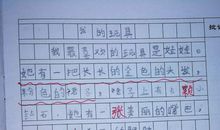 我的玩具
我最喜欢的玩具是娃娃。
她有一把长长的金色的头发，
粉色的裙子，裙子上有七颗
钻石，她有一张美丽的嘴巴